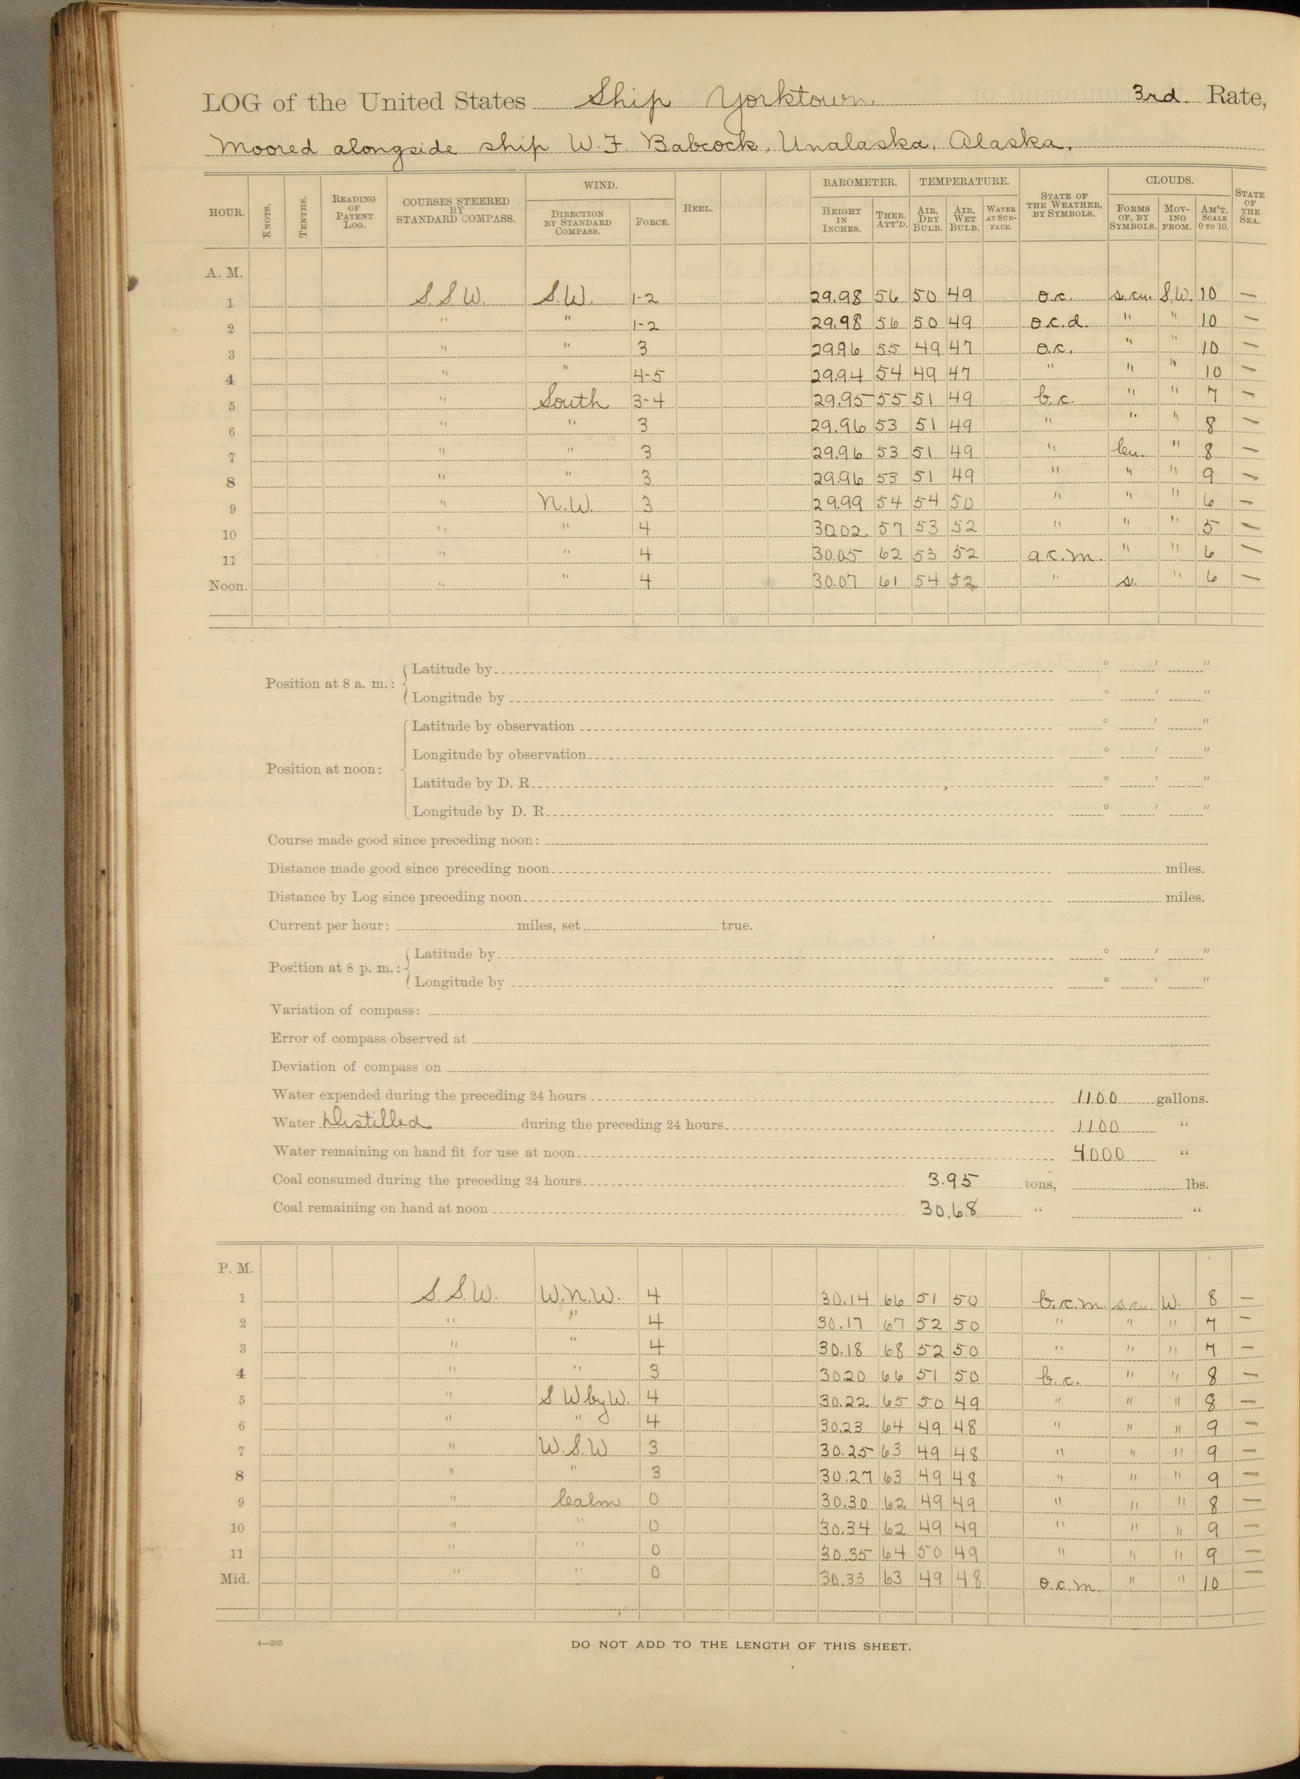 LOG of the United States Ship Yorktown, 3rd Rate,
Moored alongside ship W. F. Babcock, Unalaska, Alaska,
HOUR. KNOTS. TENTHS. READING OF PATENT LOG. COURSES STEERED BY STANDARD COMPASS. WIND. DIRECTION BY STANDARD COMPASS. FORCE. HEEL. BAROMETER. HEIGHT IN INCHES. THER. ATT'D. TEMPERATURE. AIR, DRY BULB. AIR, WET BULB. WATER AT SURFACE. STATE OF THE WEATHER, BY SYMBOLS. CLOUDS. FORMS OF, BY SYMBOLS. MOVING FROM. AM'T. SCALE 0 TO 10. STATE OF THE SEA.
A. M.
1 S.S.W. S.W. 1-2 29.98 56 50 49 o.c. s.cu. S.W. 10 —
2 " " 1-2 29.98 56 50 49 o.c.d. " " 10 —
3 " " 3 29.96 55 49 47 o.c. " " 10 —
4 " " 4-5 29.94 54 49 47 " " " 10 —
5 " South 3-4 29.95 55 51 49 b.c. " " 7 —
6 " " 3 29.96 53 51 49 " " " 8 —
7 " " 3 29.96 53 51 49 " cu. " 8 —
8 " " 3 29.96 53 51 49 " " " 9 —
9 " N.W. 3 29.99 54 54 50 " " " 6 —
10 " " 4 30.02 57 53 52 " " " 5 —
11 " " 4 30.05 62 53 52 a.c.m. " " 6 —
Noon. " " 4 30.07 61 54 52 " s. " 6 —
Position at 8 a. m.: Latitude by ° ' "
Longitude by ° ' "
Position at noon: Latitude by observation ° ' "
Longitude by observation ° ' "
Latitude by D. R. ° ' "
Longitude by D. R. ° ' "
Course made good since preceding noon:
Distance made good since preceding noon miles.
Distance by Log since preceding noon miles.
Current per hour: miles, set true.
Position at 8 p. m.: Latitude by ° ' "
Longitude by ° ' "
Variation of compass:
Error of compass observed at
Deviation of compass on
Water expended during the preceding 24 hours 1100 gallons.
Water Distilled during the preceding 24 hours 1100 "
Water remaining on hand fit for use at noon 4000 "
Coal consumed during the preceding 24 hours 3.95 tons, lbs.
Coal remaining on hand at noon 30.68 " "
P. M.
1 S.S.W. W.N.W. 4 30.14 66 51 50 b.c.m. s.cu. W. 8 —
2 " " 4 30.17 67 52 50 " " " 7 —
3 " " 4 30.18 68 52 50 " " " 7 —
4 " " 3 30.20 66 51 50 b.c. " " 8 —
5 " S W by W. 4 30.22 65 50 49 " " " 8 —
6 " " 4 30.23 64 49 48 " " " 9 —
7 " W.S.W 3 30.25 63 49 48 " " " 9 —
8 " " 3 30.27 63 49 48 " " " 9 —
9 " Calm 0 30.30 62 49 49 " " " 8 —
10 " " 0 30.34 62 49 49 " " " 9 —
11 " " 0 30.35 64 50 49 " " " 9 —
Mid. " " 0 30.33 63 49 48 o.c.m. " " 10 —
4—265 DO NOT ADD TO THE LENGTH OF THIS SHEET.